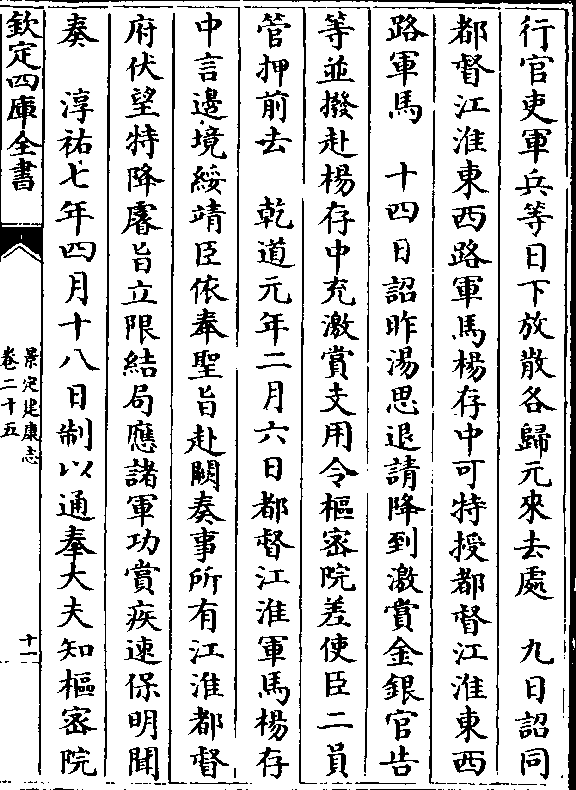 行官吏軍兵等日下放散各歸元來去處　九日詔同
都督江淮東西路軍馬楊存中可特授都督江淮東西
路軍馬　十四日詔昨湯思退請降到激賞金銀官告
等並撥赴楊存中充激賞支用令樞密院差使臣二員
管押前去　乾道元年二月六日都督江淮軍馬楊存
中言邊境綏靖臣依奉聖旨赴闕奏事所有江淮都督
府伏望特降睿旨立限結局應諸軍功賞疾速保明聞
奏　淳祐七年四月十八日制以通奉大夫知樞密院
欽定四庫全書
景定建康志
卷二十五
十一